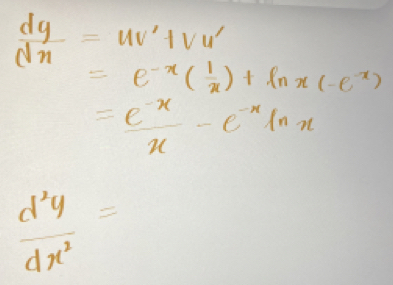 dy/dx = uv' + vu'
= e^-x (1/x) + ln x (-e^-x)
= e^-x/x - e^-x ln x
d²y/dx² =